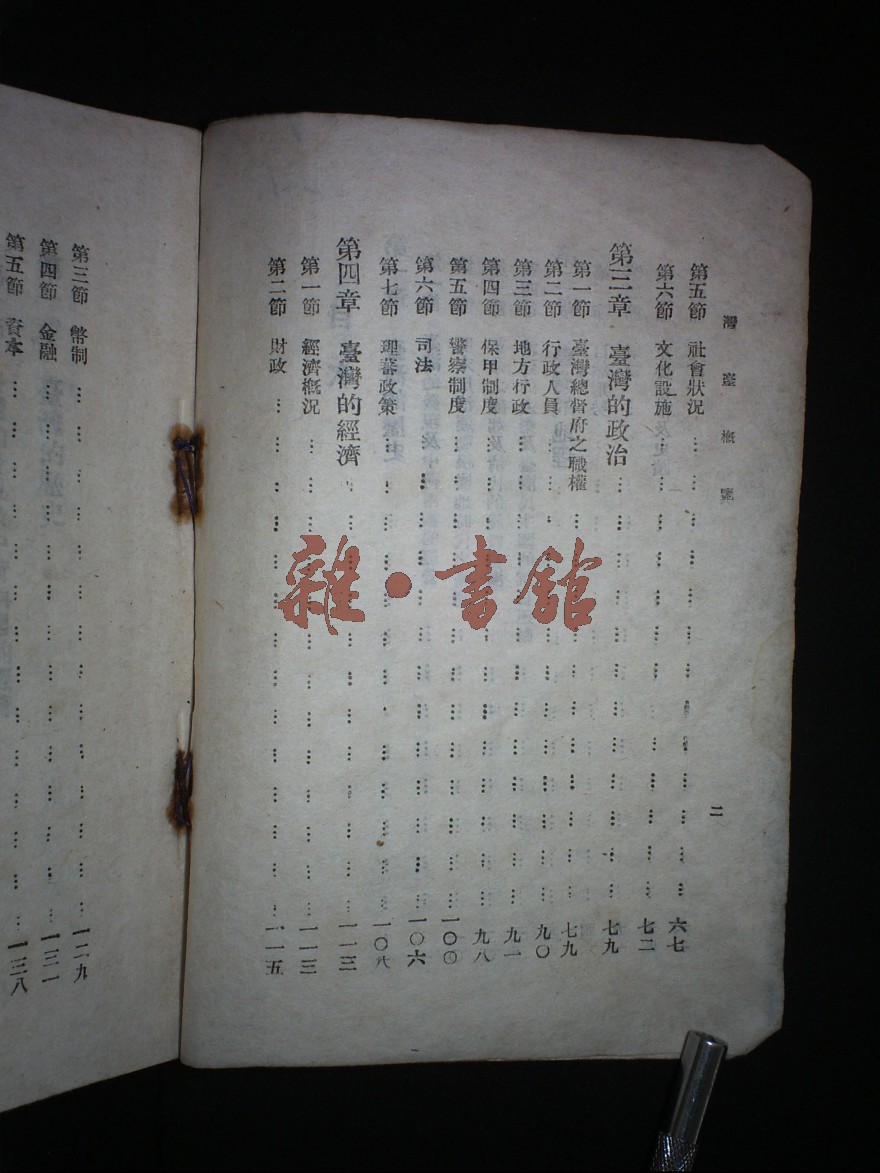 灣臺概覽
二
第五節 社會狀況……六七
第六節 文化設施……七二
第三章 臺灣的政治……七九
第一節 臺灣總督府之職權……七九
第二節 行政人員……九〇
第三節 地方行政……九一
第四節 保甲制度……九八
第五節 警察制度……一〇〇
第六節 司法……一〇六
第七節 理蕃政策……一〇八
第四章 臺灣的經濟……一一三
第一節 經濟概況……一一三
第二節 財政……一一五
第三節 幣制……一二九
第四節 金融……一三一
第五節 資本……一三八
雜·書館